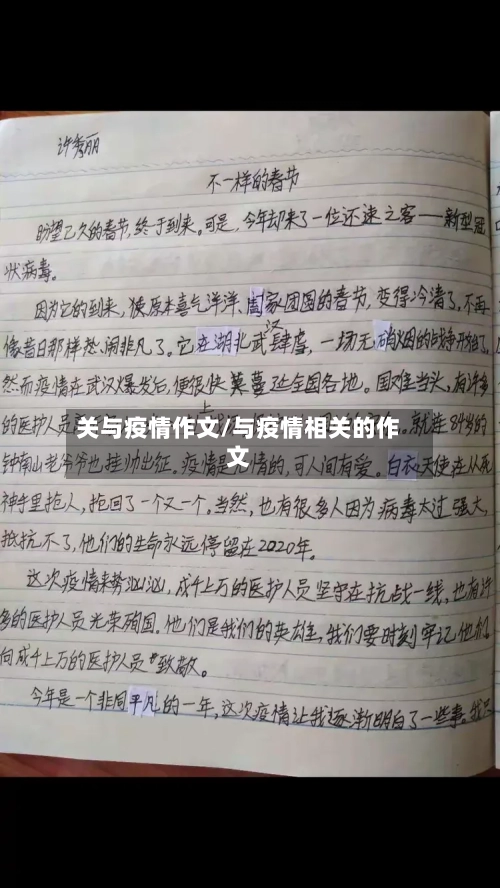 许秀丽
不一样的春节
盼望已久的春节,终于到来。可是,今年却来了一位不速之客——新型冠
状病毒。
因为它的到来,使原本喜气洋洋、阖家团圆的春节,变得冷清了,不再
像昔日那样热闹非凡了。它在湖北武汉肆虐,一场无硝烟的战争开始了。
然而疫情在武汉爆发后,便很快蔓延全国各地。国难当头,有许多
的医护人员
就连84岁的
关与疫情作文/与疫情相关的作
文
钟南山老爷爷也挂帅出征。疫情是无情的,可人间有爱。白衣天使在从死
神手里抢人,抢回了一个又一个。当然,也有很多人因为病毒太过强大,
抵抗不了,他们的生命永远停留在2020年。
这次疫情来势汹汹,成千上万的医护人员坚守在抗战一线,也有许
多的医护人员光荣殉国。他们是我们的英雄,我们要时刻牢记他们,
向成千上万的医护人员致敬。
今年是一个非同平凡的一年,这次疫情让我逐渐明白了一些事。我